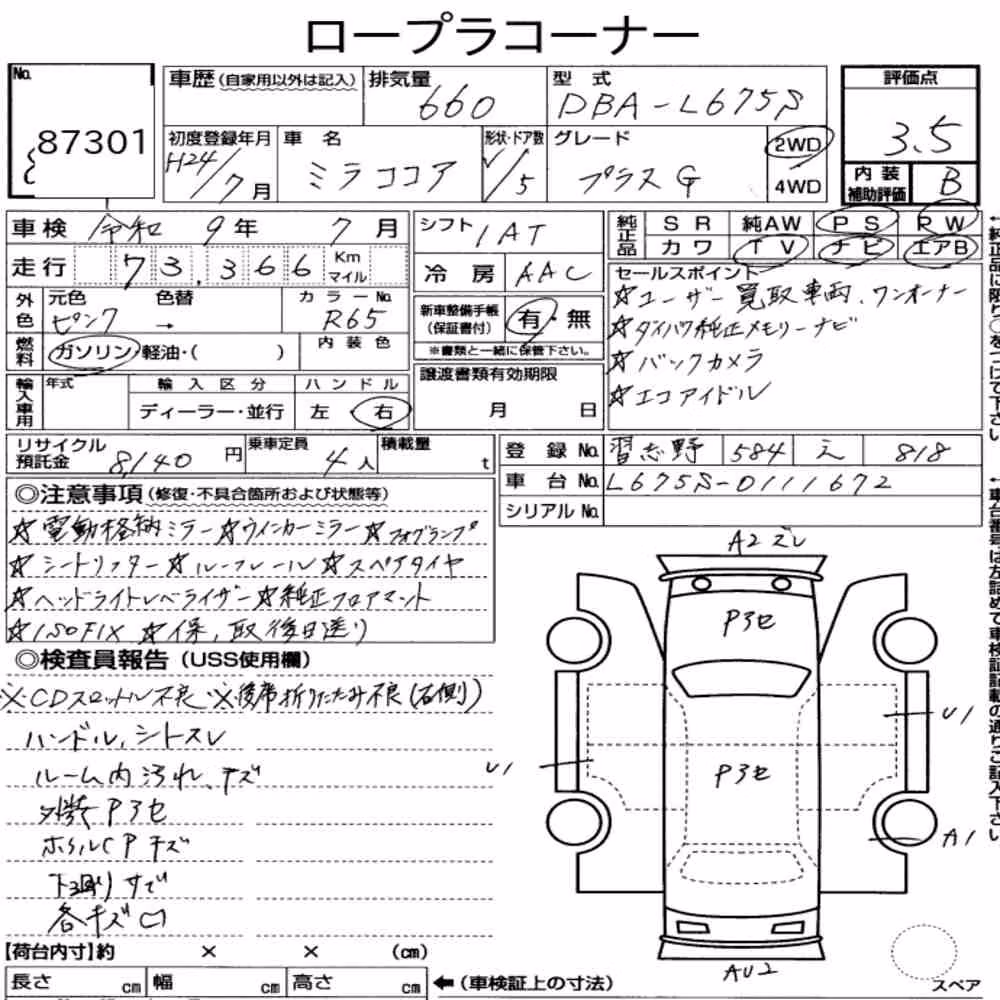 ロープラコーナー
No.
87301
車歴（自家用以外は記入）
排気量
660
型式
DBA-L675S
評価点
3.5
初度登録年月
H24/7月
車名
ミラココア
形状・ドア数
V/5
グレード
プラスG
2WD
4WD
内装補助評価
B
車検 令和 9年 7月
シフト IAT
純正品
SR 純AW PS PW
カワ TV ナビ エアB
走行 73,366 Km マイル
冷房 AAC
セールスポイント
☆ユーザー買取車両、ワンオーナー
☆ダイハツ純正メモリーナビ
☆バックカメラ
☆エコアイドル
外色
元色 色替 カラーNo.
ピンク → R65
新車整備手帳（保証書付） 有・無
※書類と一緒に保管下さい。
燃料
ガソリン・軽油・( )
内装色
輸入車用
年式
輸入区分
ハンドル
ディーラー・並行
左・右
譲渡書類有効期限
月 日
リサイクル預託金 8140円
乗車定員 4人
積載量 t
登録No. 習志野 584 え 818
車台No. L675S-0111672
シリアルNo.
◎注意事項（修復・不具合箇所および状態等）
☆電動格納ミラー☆ウインカーミラー☆フォグランプ
☆シートリフター☆ルーフレール☆スペアタイヤ
☆ヘッドライトレベライザー☆純正フロアマット
☆ISOFIX ☆保、取後日送り
◎検査員報告（USS使用欄）
※CDスロットル不良 ※後席折りたたみ不良(右側)
ハンドル、シートスレ
ルーム内汚れ、キズ
外装P3セ
ホイルCPキズ
下廻りサビ
各キズ凹
A2ズレ
P3セ
U1
U1
P3セ
A1
AU2
スペア
【荷台内寸】約 × × (cm)
長さ cm 幅 cm 高さ cm
←（車検証上の寸法）
←純正品に限り○をつけて下さい。
←車台番号は左詰めで車検証記載の通りご記入下さい。